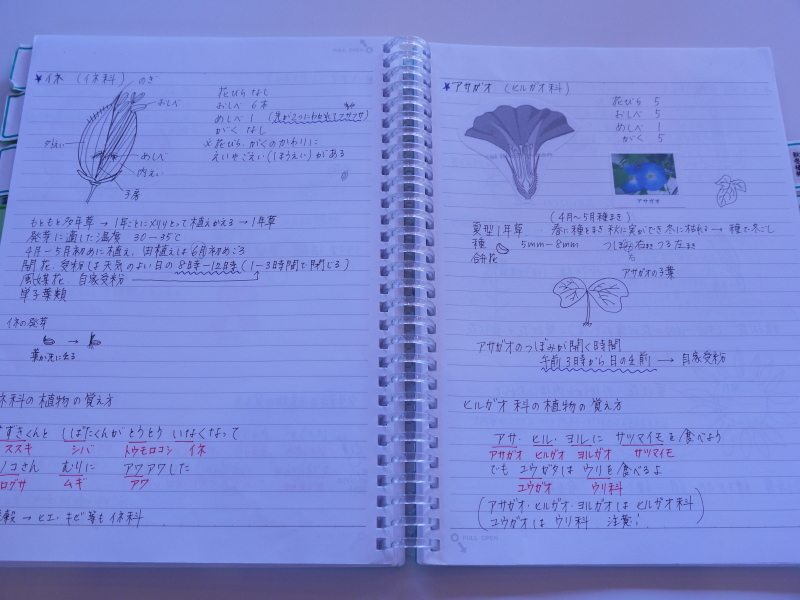 ★イネ (イネ科)
のぎ
おしべ
めしべ
内えい
子房
花びら なし
おしべ 6本
めしべ 1
がく なし
※花びら がくのかわりに
えいやごえい(しょうえい)がある
もともと多年草 → 1年ごとにかりとって植えかえる → 1年草
発芽に適した温度 30−35℃
4月−5月初めに植え、田植えは6月初めごろ
開花、受粉は天気のよい日の8時−12時(1−3時間で閉じる)
風媒花、自家受粉
単子葉類
イネの発芽
葉が先に出る
ネ科の植物の覚え方
すずきくんと しばたくんが とうとう いなくなって
ススキ シバ トウモロコシ イネ
ノコさん むりに アワアワした
ログサ ムギ アワ
穀 → ヒエ・キビ等もイネ科
FULL OPEN
★アサガオ (ヒルガオ科)
花びら 5
おしべ 5
めしべ 1
がく 5
アサガオ
(4月〜5月種まき)
夏型1年草 春に種をまき秋に実ができ冬に枯れる → 種で冬ごし
種 5mm−8mm つぼみ右まき つる左まき
合弁花
アサガオの子葉
アサガオのつぼみが開く時間
午前3時から日の出前 → 自家受粉
ヒルガオ科の植物の覚え方
アサ・ヒル・ヨルに サツマイモを食べよう
アサガオ ヒルガオ ヨルガオ サツマイモ
でも ユウガタは ウリを食べるよ
ユウガオ ウリ科
(アサガオ・ヒルガオ・ヨルガオはヒルガオ科)
ユウガオはウリ科 注意!
FULL OPEN